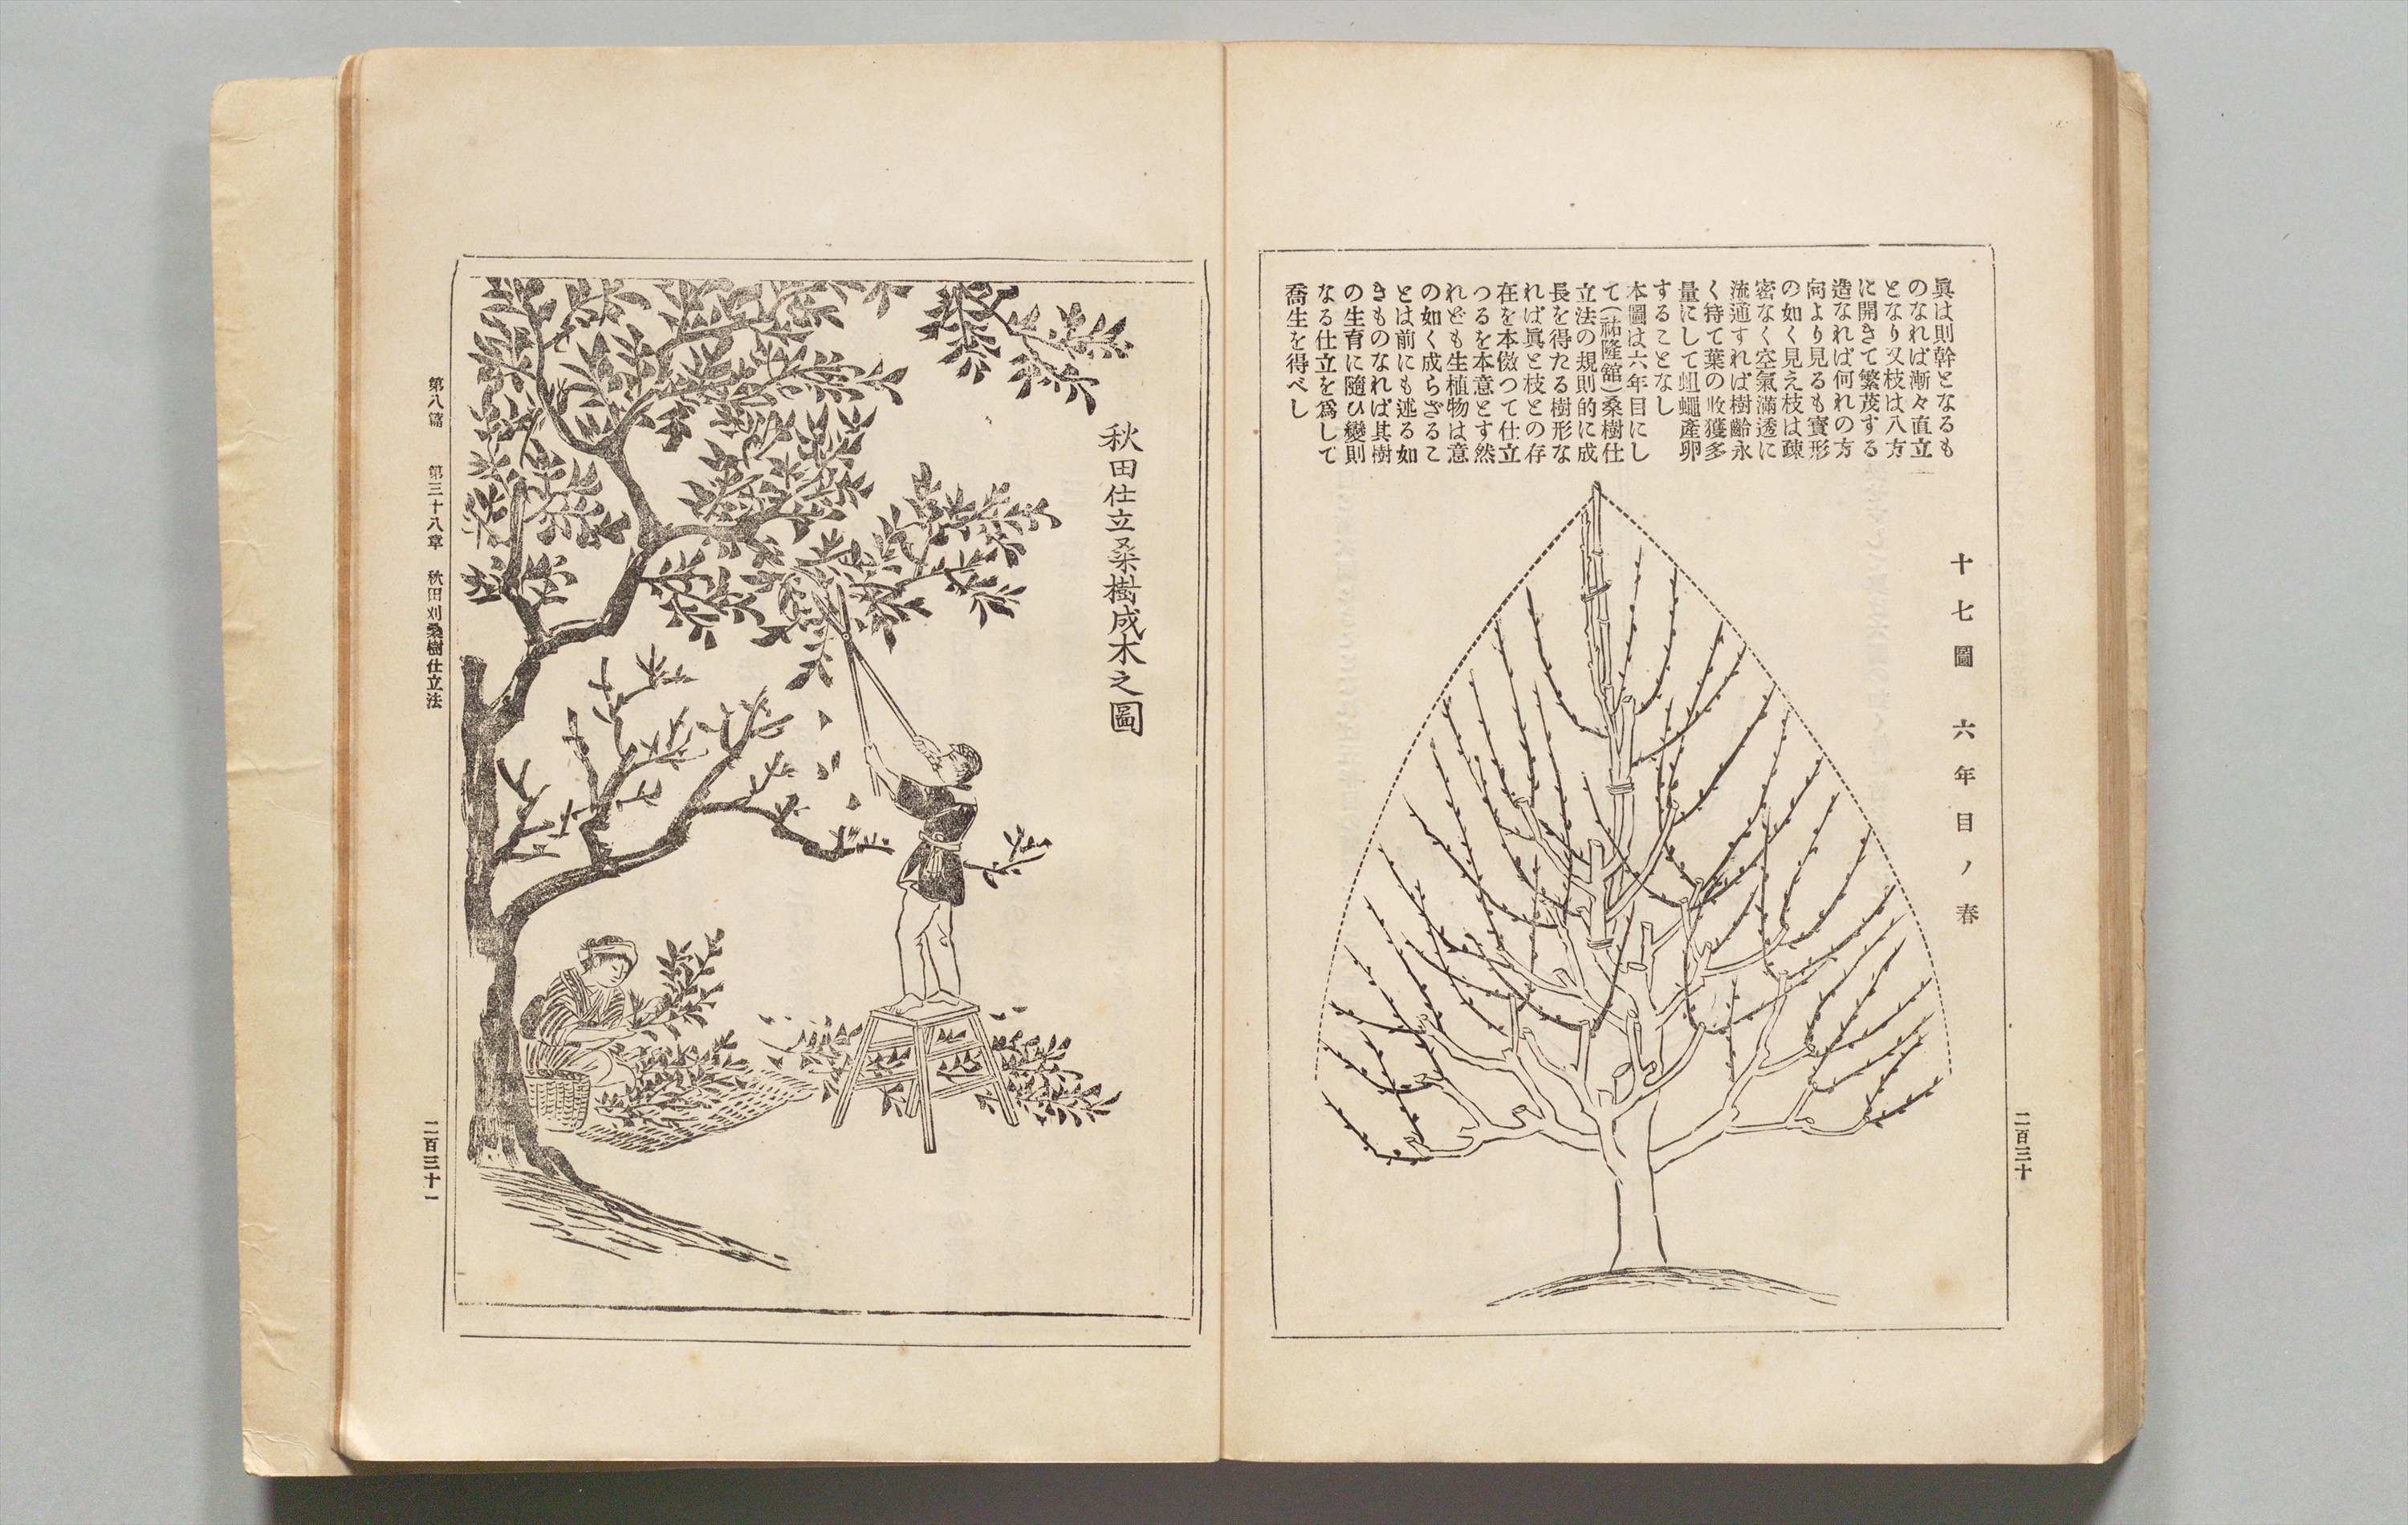 眞は則幹となるも
のなれば漸々直立
となり又枝は八方
に開きて繁茂する
造なれば何れの方
向より見るも實形
の如く見え枝は疎
密なく空氣滿透に
流通すれば樹齡永
く待て葉の收獲多
量にして蛆蠅產卵
することなし
本圖は六年目にし
て(祐隆舘)桑樹仕
立法の規則的に成
長を得たる樹形な
れば眞と枝との存
在を本倣つて仕立
つるを本意とす然
れども生植物は意
の如く成らざるこ
とは前にも述る如
きものなれば其樹
の生育に隨ひ變則
なる仕立を爲して
喬生を得べし
十七圖 六年目ノ春
二百三十
秋田仕立桑樹成木之圖
第八篇 第三十八章 秋田刈桑樹仕立法
二百三十一